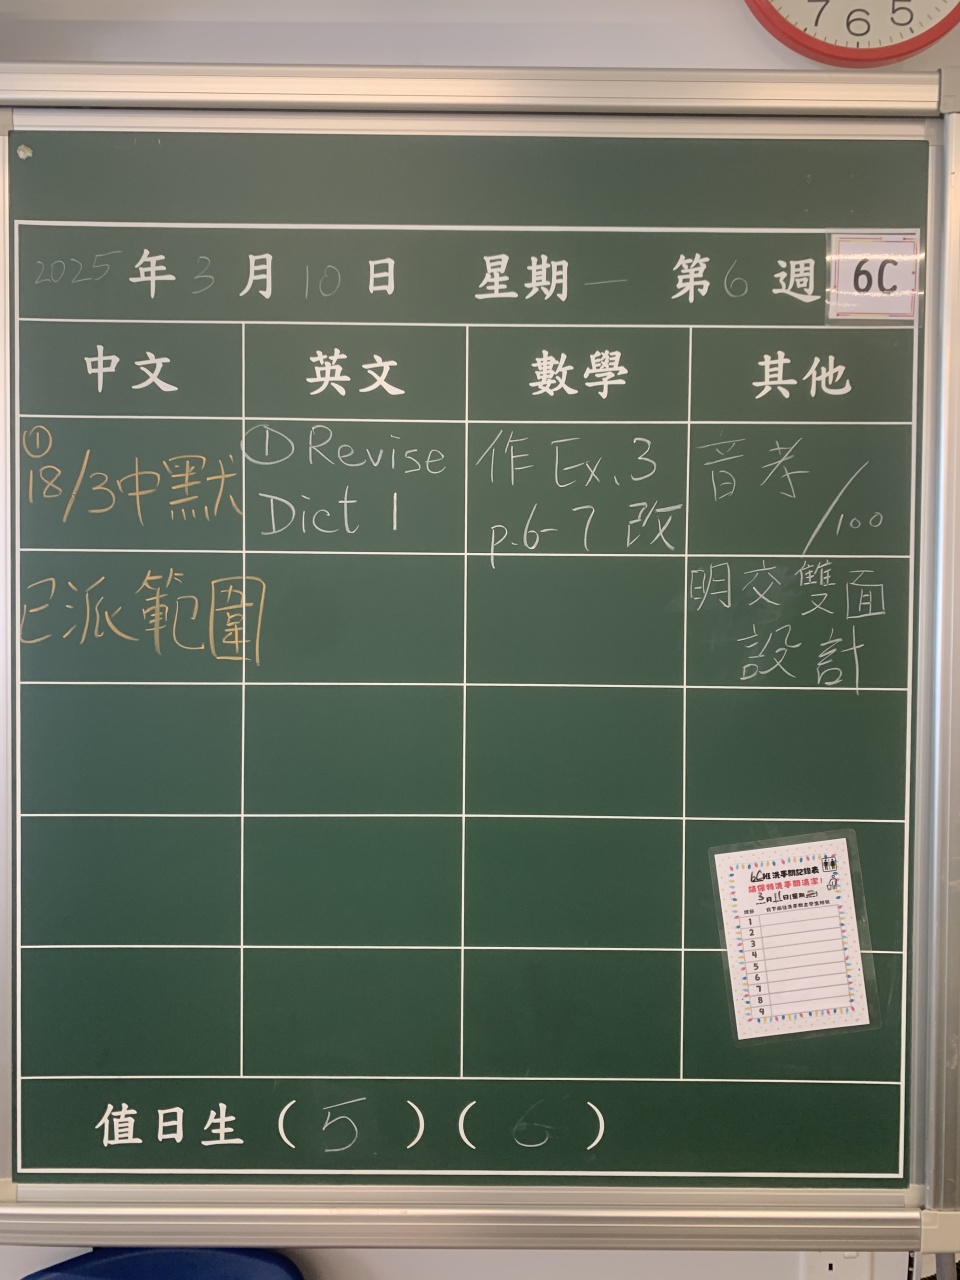 7 6 5
2025年3月10日 星期一 第6週 6C
中文 英文 數學 其他
①
18/3中默
已派範圍
① Revise
Dict 1
作 Ex.3
p.6-7 改
音孝 /100
明交雙面
設計
6C班洗手間記錄表
請保持洗手間清潔!
3月11日(星期二)
1
2
3
4
5
6
7
8
9
值日生(5)(6)